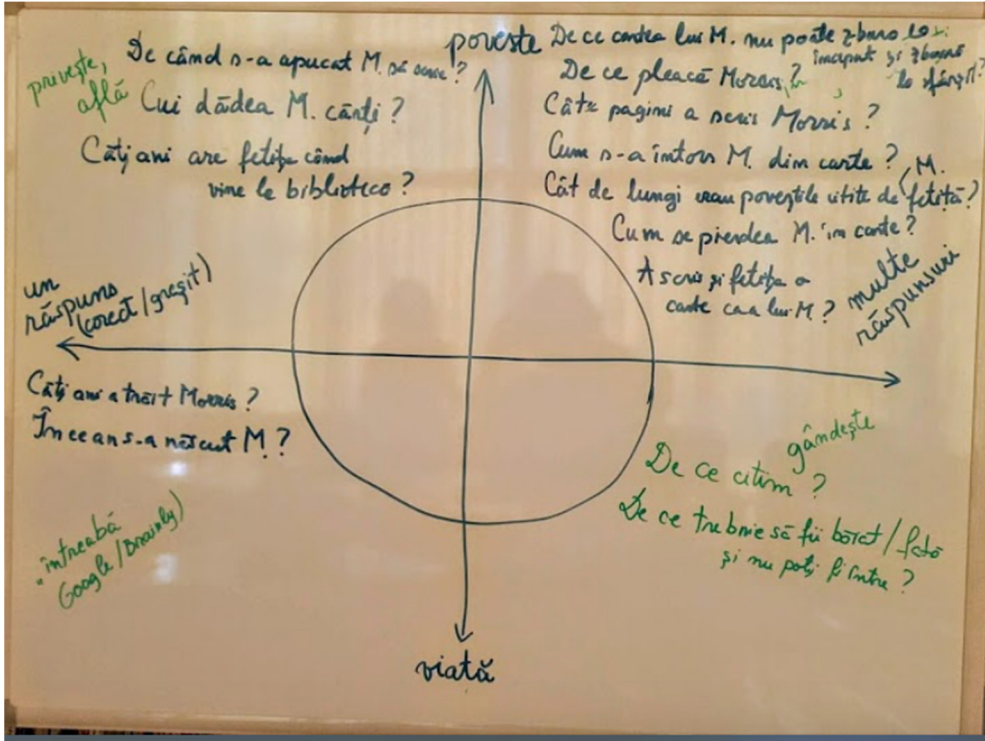 poveste
privește,
află
De când s-a apucat M. să scrie?
Cui dădea M. cărți?
Câți ani are fetița când
vine la bibliotecă?
De ce cartea lui M. nu poate zbura la
început și zboară
la sfârșit?
De ce pleacă Morris?
Câte pagini a scris Morris?
Cum s-a întors M. din carte?
M.
Cât de lungi erau poveștile citite de fetiță?
Cum se pierdea M. în carte?
A scris și fetița o
carte ca a lui M?
multe
răspunsuri
un
răspuns
(corect/greșit)
Câți ani a trăit Morris?
În ce an s-a născut M?
întreabă
Google/Brainly)
gândește
De ce citim?
De ce trebuie să fii băiat/fată
și nu poți fi între?
viață